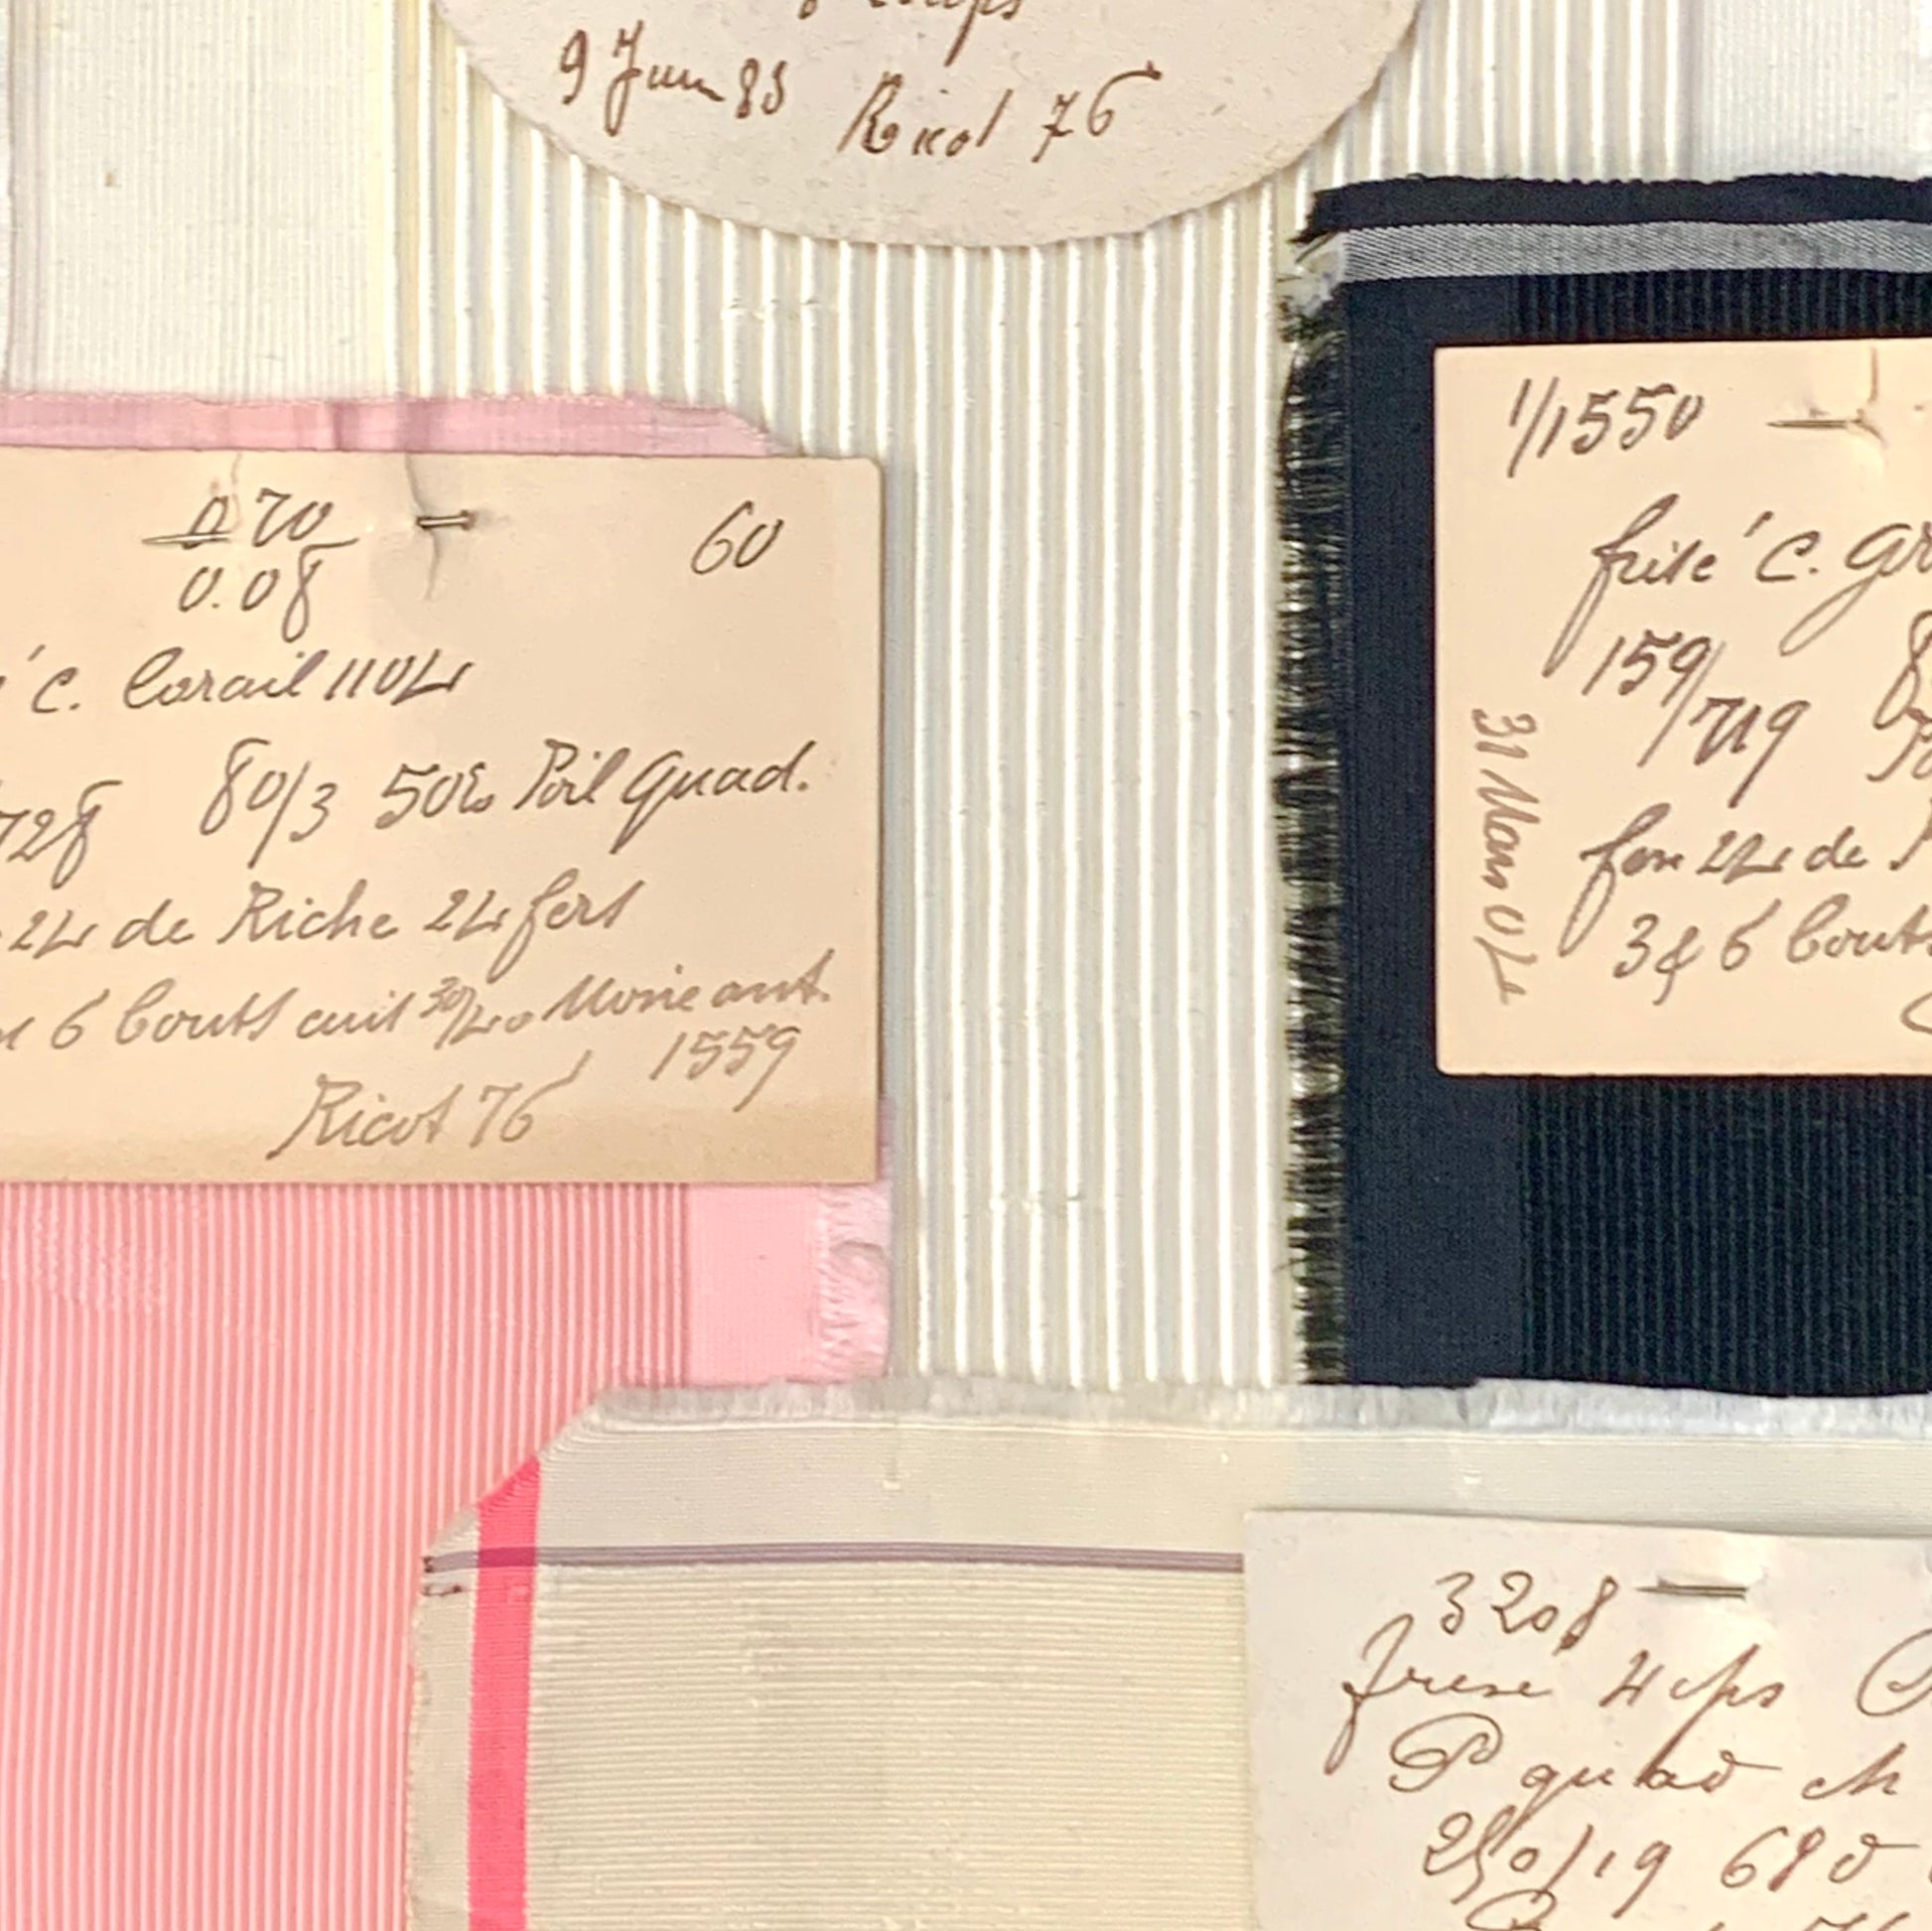 9 Juin 85 Ricol 76
0 70
0.08
60
c. Corail 110 L
728 80/3 50 Poil Quad.
2L de Riche 2L fers
6 bouts cuit 30/20 Moire ant.
1559
Ricot 76
1/1550
frisé c. Gr
159/719 8
fon 2L de
3 & 6 bouts
31 Mars 04
3208
frisé 4 cps
P quad ch
250/19 680